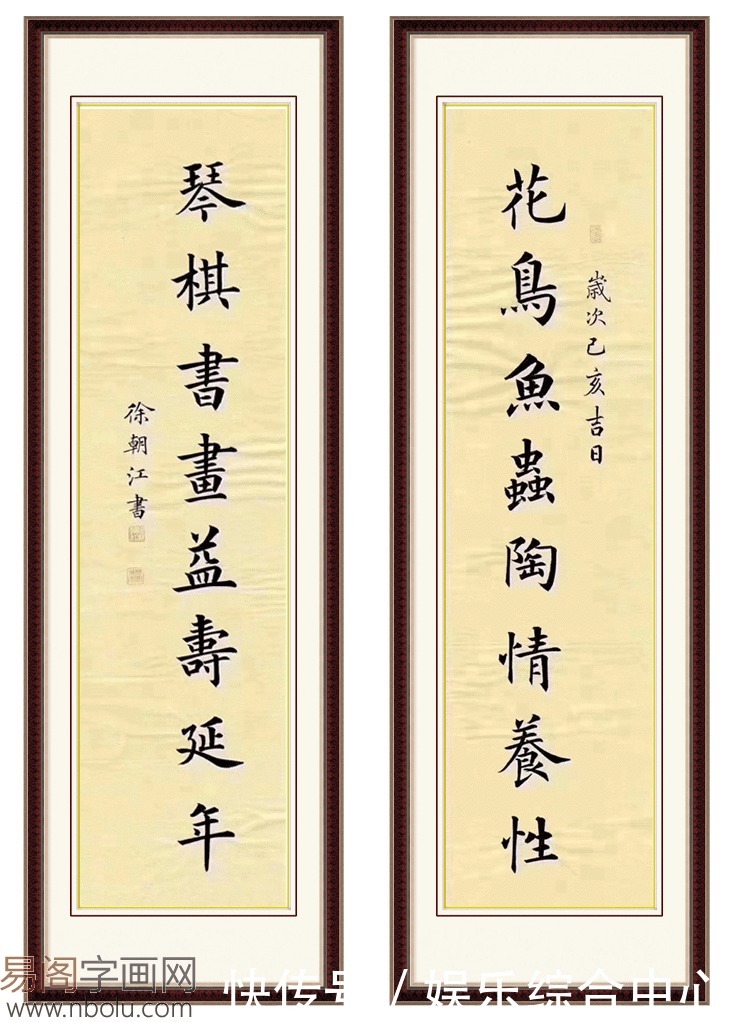 花鳥魚蟲陶情養性
歲次己亥吉日
琴棋書畫益壽延年
徐朝江書
易阁字画网
www.nbolu.com
快传号/娱乐综合中心